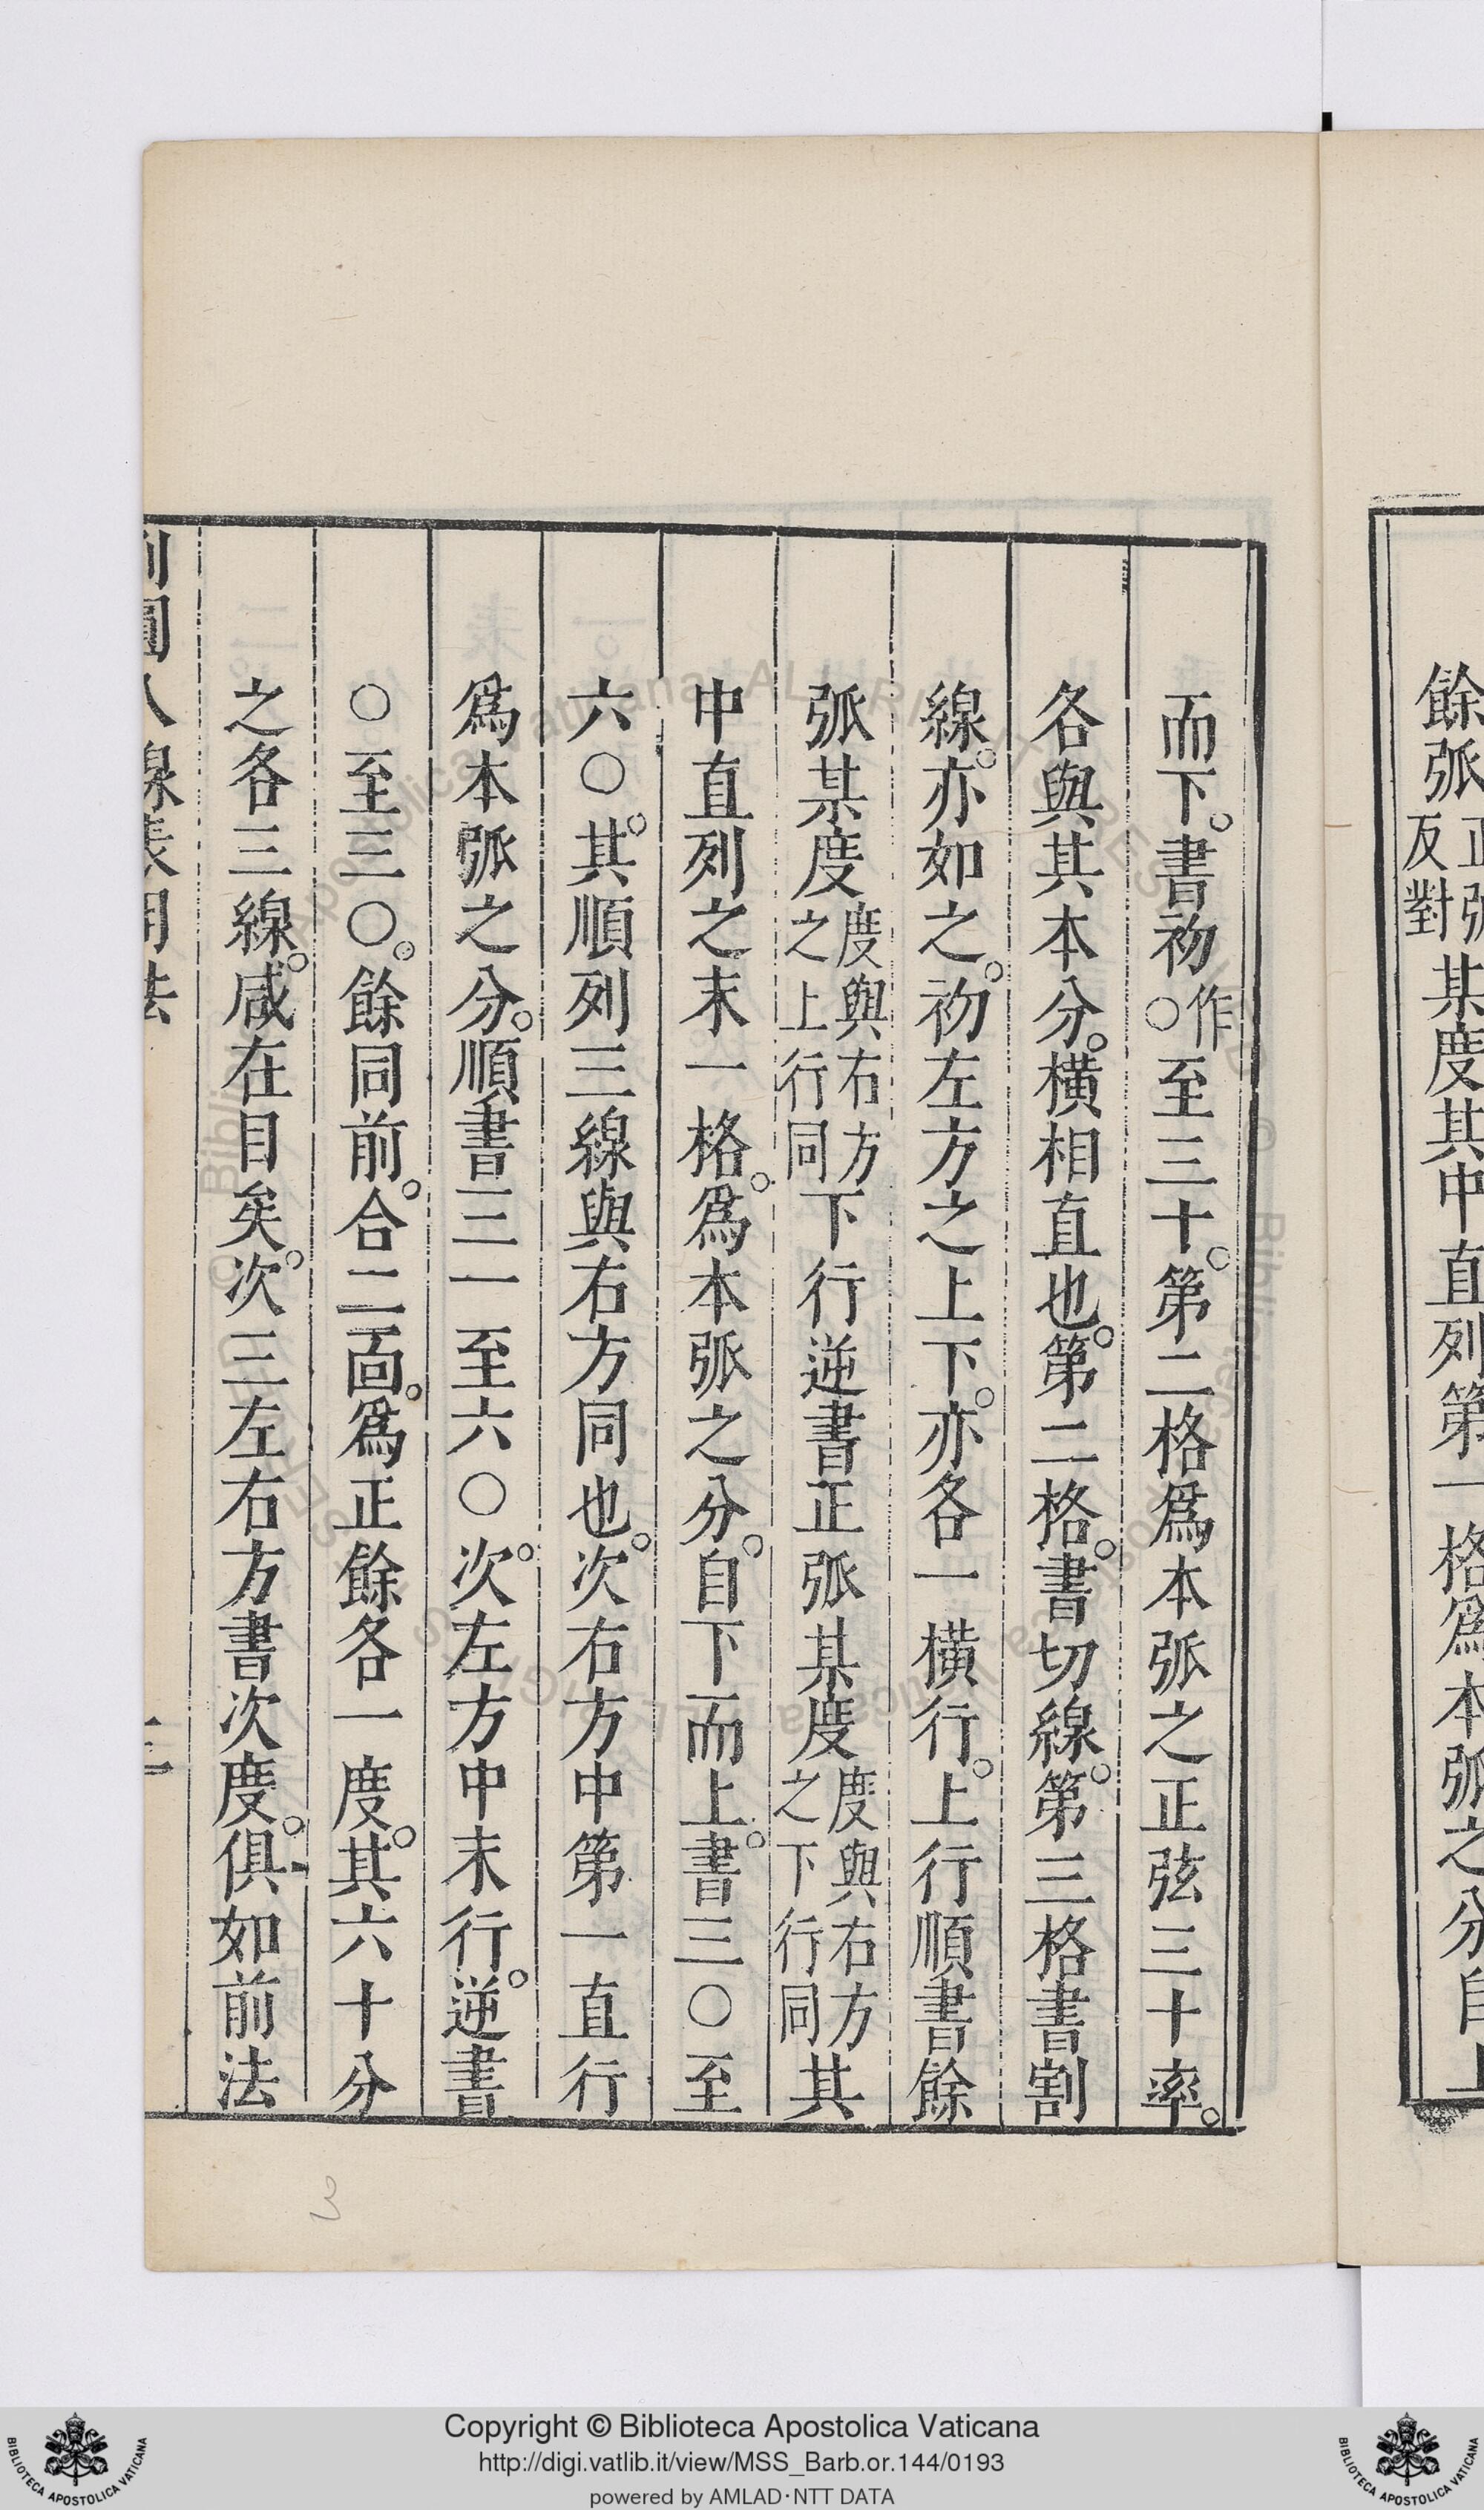 餘弧正弧反對某度其中直列第一格爲本弧之分自上
而下。書初作○至三十。第二格爲本弧之正弦三十率。
各與其本分。橫相直也。第二格。書切線。第三格書割
線。亦如之。初左方之上下。亦各一橫行。上行順書餘
弧某度度與右方之上行同下行逆書正弧某度度與右方之下行同其
中直列之末一格。爲本弧之分。自下而上。書三〇至
六〇。其順列三線與右方同也。次右方中第一直行
爲本弧之分。順書三一至六〇。次左方中末行。逆書
〇至三〇。餘同前。合二靣。爲正餘各一度。其六十分
之各三線。咸在目矣。次三左右方書次度。俱如前法
割圓八線表用法
三
3
Copyright © Biblioteca Apostolica Vaticana
http://digi.vatlib.it/view/MSS_Barb.or.144/0193
powered by AMLAD·NTT DATA
BIBLIOTECA APOSTOLICA VATICANA
BIBLIOTECA APOSTOLICA VATICANA